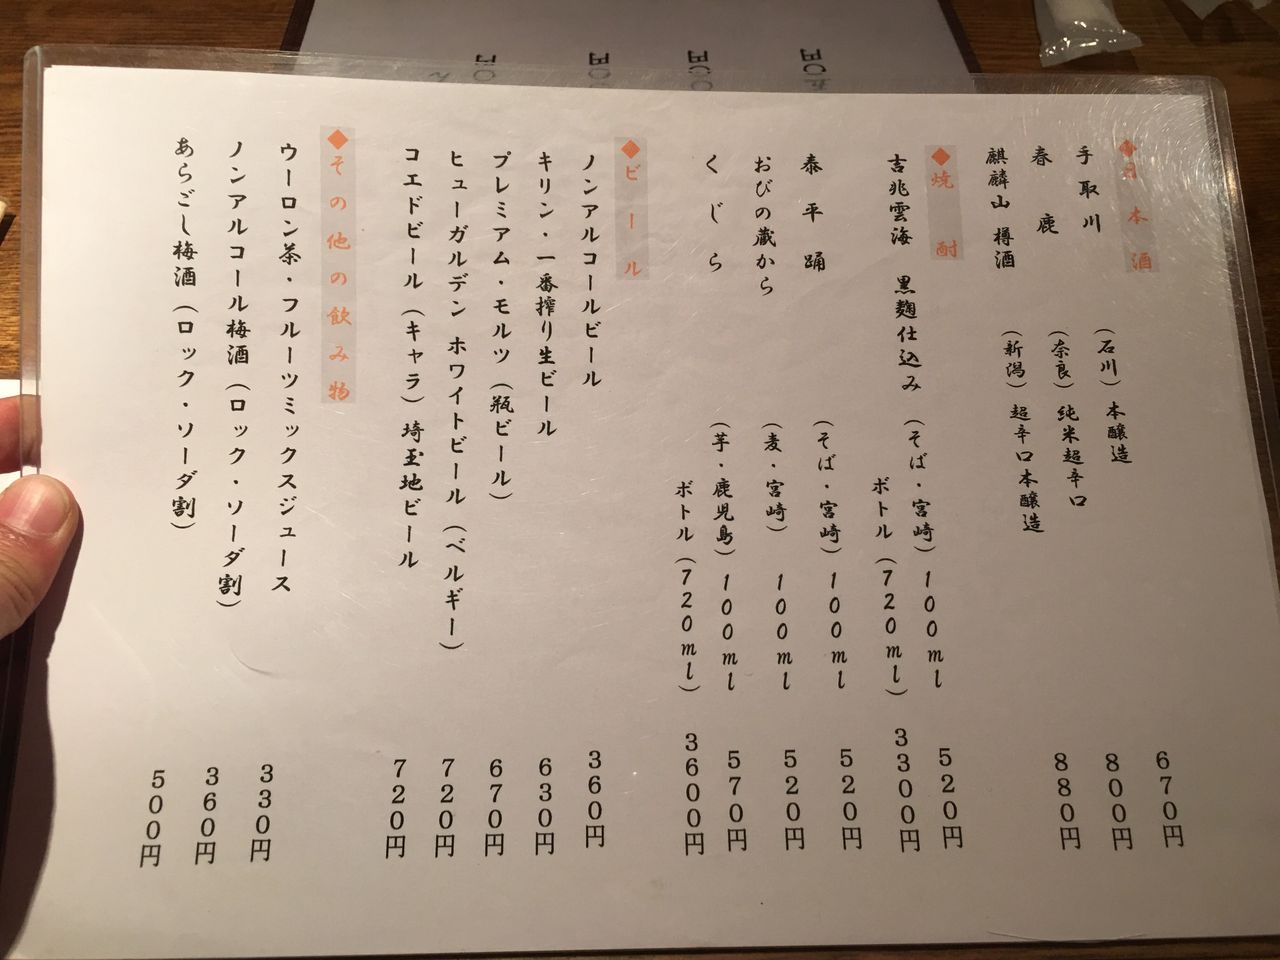 ◆日本酒
手取川 （石川）本醸造 670円
春鹿 （奈良）純米超辛口 800円
麒麟山 樽酒 （新潟）超辛口本醸造 880円
◆焼酎
吉兆雲海 黒麹仕込み （そば・宮崎）100ml 520円
ボトル（720ml） 3300円
泰平踊 （そば・宮崎）100ml 520円
おびの蔵から （麦・宮崎）100ml 520円
くじら （芋・鹿児島）100ml 570円
ボトル（720ml） 3600円
◆ビール
ノンアルコールビール 360円
キリン・一番搾り生ビール 630円
プレミアム・モルツ（瓶ビール） 670円
ヒューガルデン ホワイトビール（ベルギー） 720円
コエドビール（キャラ）埼玉地ビール 720円
◆その他の飲み物
ウーロン茶・フルーツミックスジュース 330円
ノンアルコール梅酒（ロック・ソーダ割） 360円
あらごし梅酒（ロック・ソーダ割） 500円